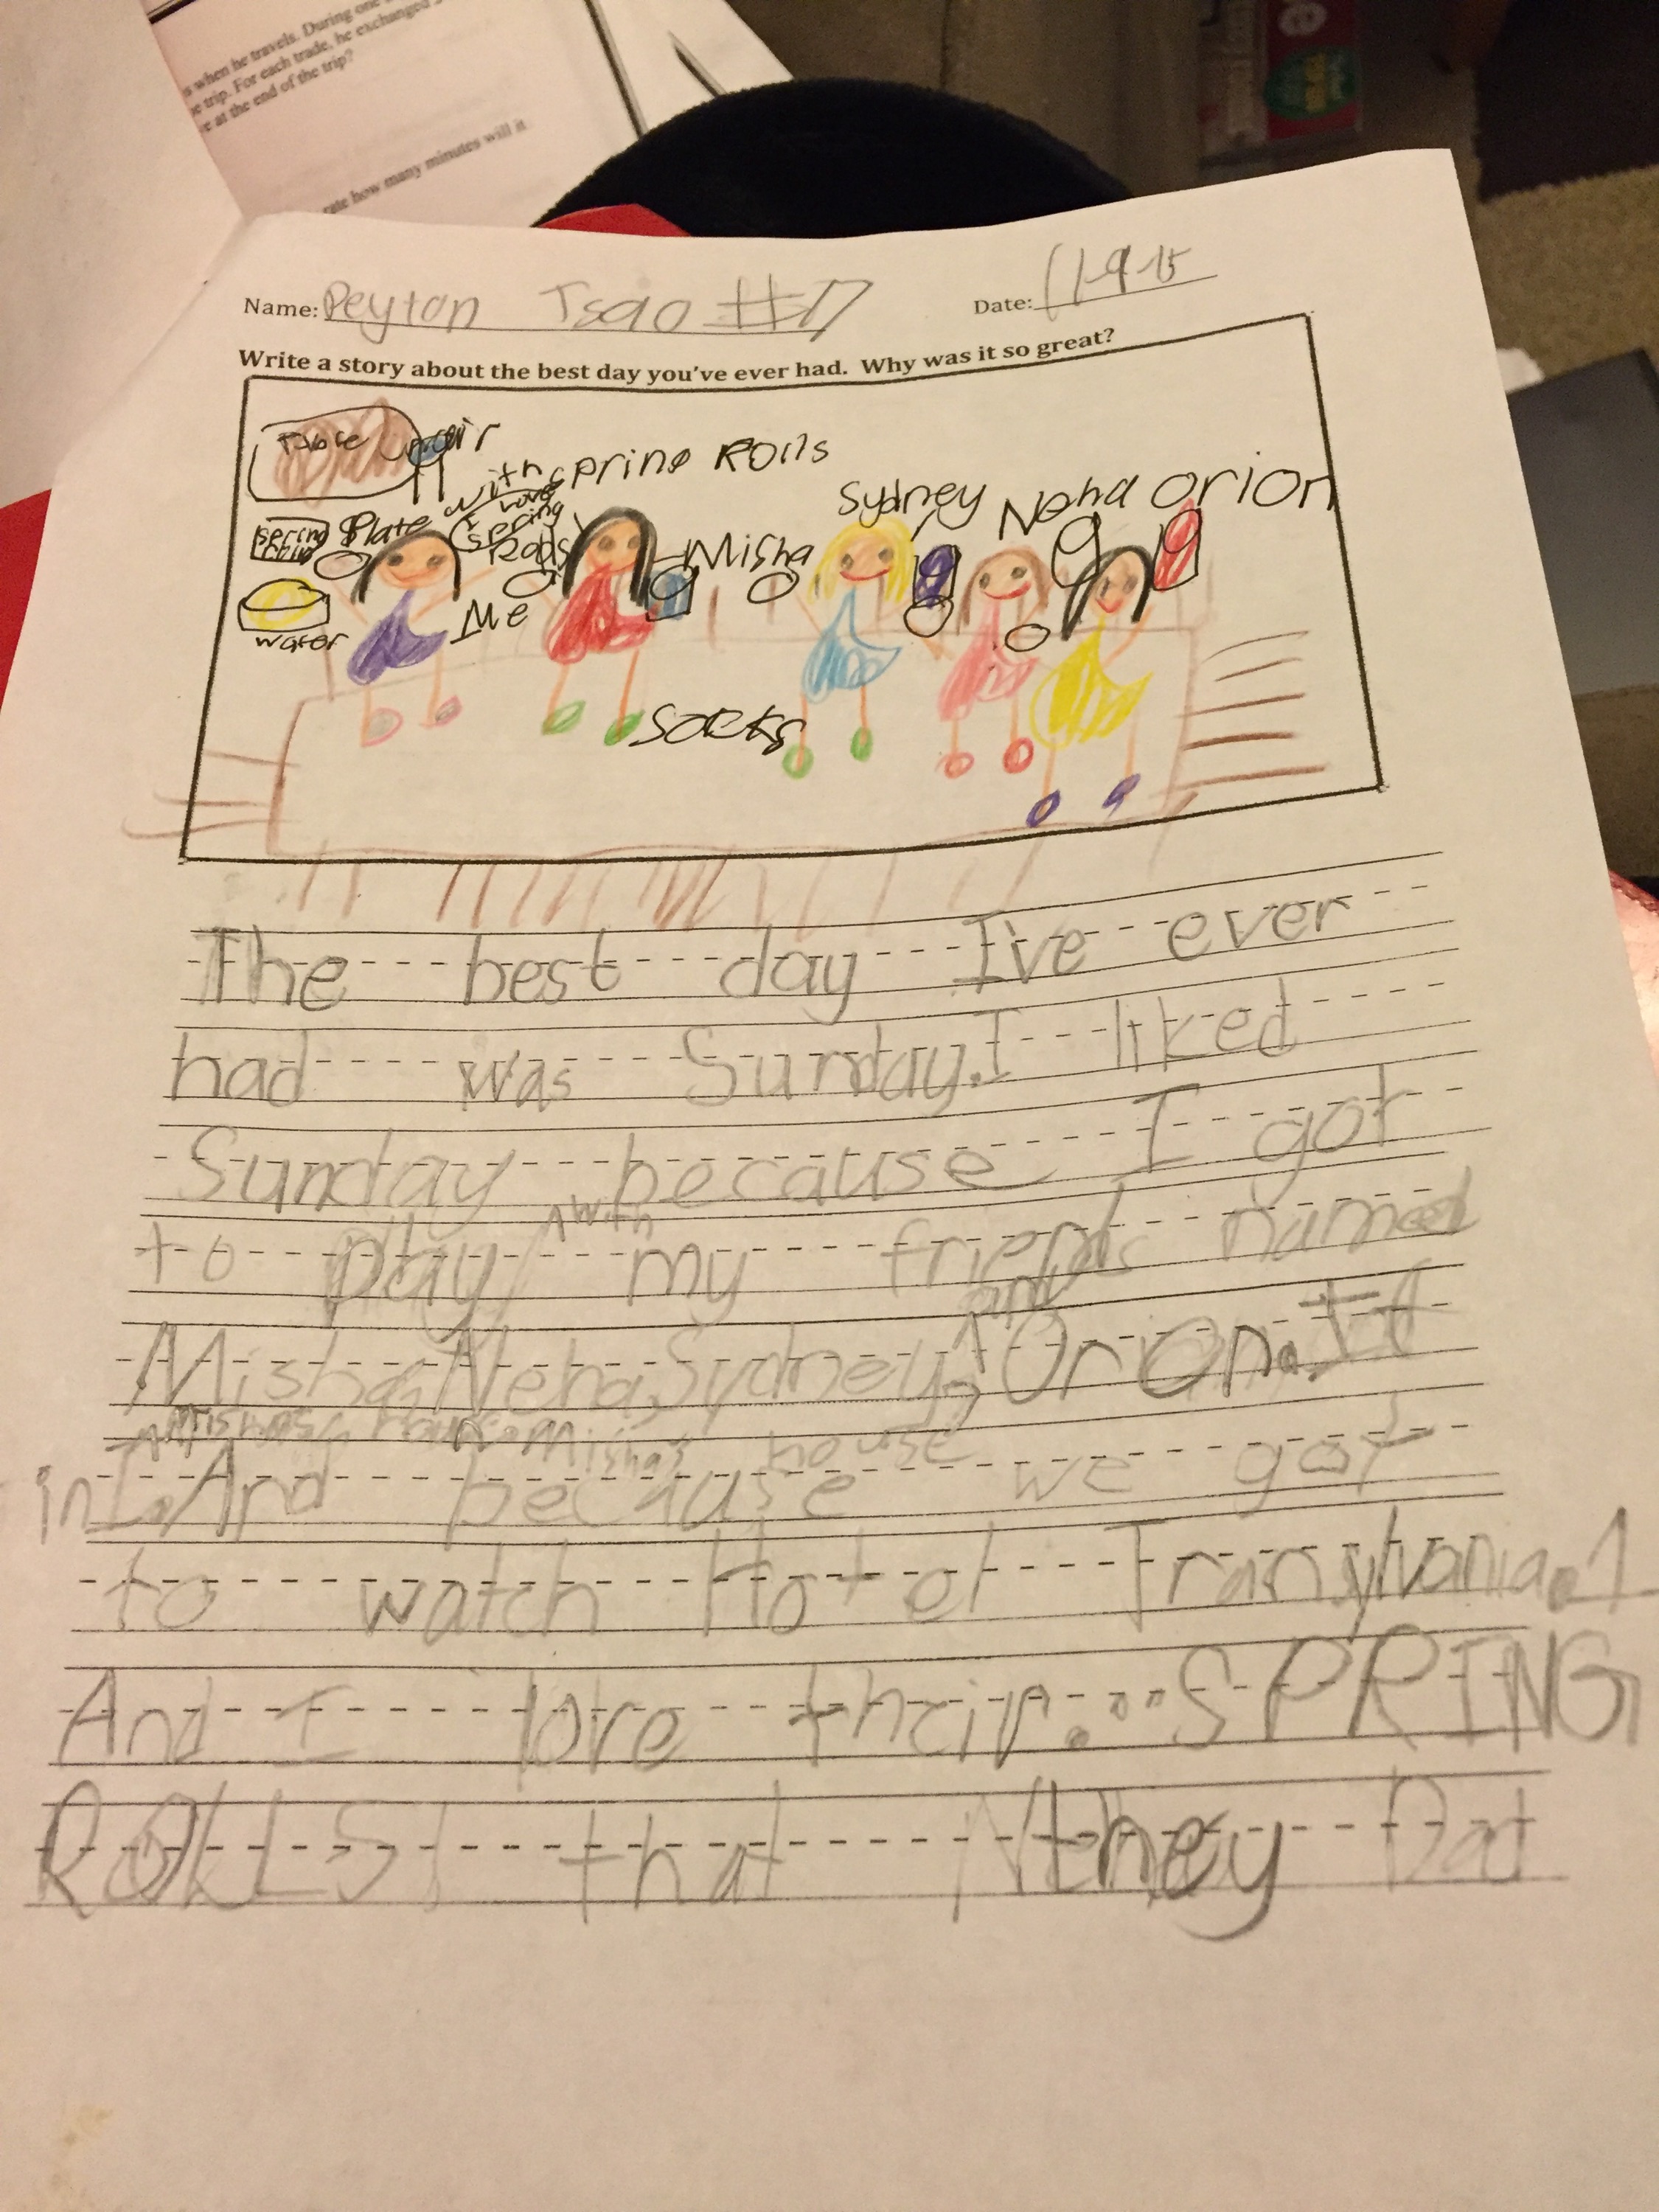 s when he travels. During one
e trip. For each trade, he exchanged
e at the end of the trip?
rate how many minutes will it
Name: Peyton Tsao #17
Date: 11-9-15
Write a story about the best day you've ever had. Why was it so great?
Table
with spring Rolls
Plate
I love
spring
Rolls
Me
water
Misha
Sydney
Neha
Orion
Socks
The best day I've ever
had was Sunday. I liked
Sunday because I got
to play with my friends named
Misha, Neha, Sydney, and Orion. It
in Misha's house
And because we got
to watch Hotel Transylvania. 1
And I love SPRING
ROLLS! that they